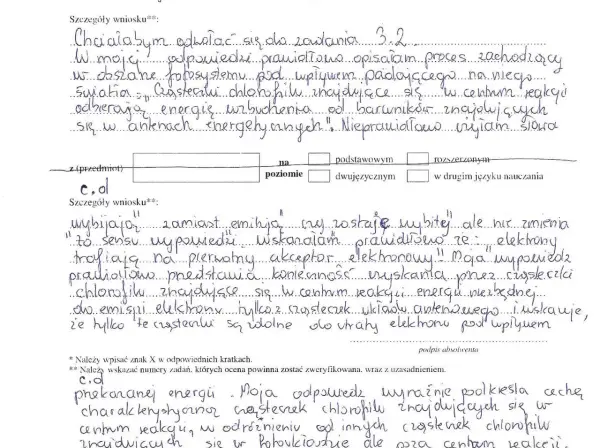 Szczegóły wniosku**:
Chciałabym odwołać się do zadania 3.2.
W mojej odpowiedzi prawidłowo opisałam proces zachodzący
w obszarze fotosystemu pod wpływem padającego na niego
światła: "Cząsteczki chlorofilu znajdujące się w centrum reakcji
odbierają energię wzbudzenia od barwników znajdujących
się w antenach energetycznych". Nieprawidłowo użyłam słowa
z (przedmiot)
na poziomie
podstawowym
rozszerzonym
dwujęzycznym
w drugim języku nauczania
c.d
Szczegóły wniosku**:
"wybijają" zamiast "emitują" czy zostaje wybity" ale nie zmienia
to sensu wypowiedzi. Wskazałam prawidłowo że: "elektrony
trafiają na pierwotny akceptor elektronowy". Moja wypowiedź
prawidłowo przedstawia konieczność uzyskania przez cząsteczki
chlorofilu znajdujące się w centrum reakcji energii niezbędnej
do emisji elektronu tylko z cząsteczek układu antenowego i wskazuje,
że tylko te cząsteczki są zdolne do utraty elektronu pod wpływem
podpis absolwenta
* Należy wpisać znak X w odpowiednich kratkach.
** Należy wskazać numery zadań, których ocena powinna zostać zweryfikowana, wraz z uzasadnieniem.
c.d
przekazanej energii. Moja odpowiedź wyraźnie podkreśla cechę
charakterystyczną cząsteczek chlorofilu znajdujących się w
centrum reakcji, w odróżnieniu od innych cząsteczek chlorofilu
znajdujących się w fotoukładzie ale poza centrum reakcji.